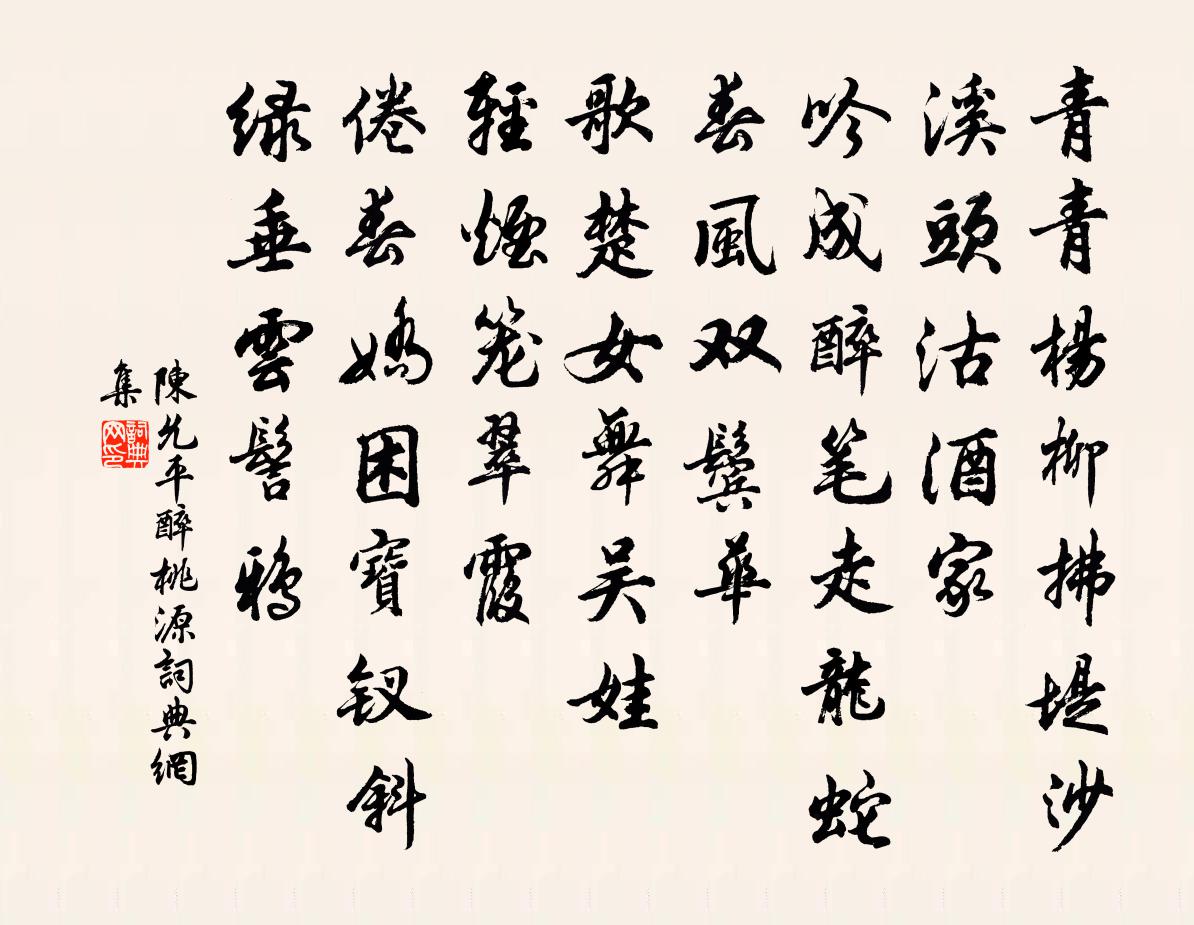 青青楊柳拂堤沙
溪頭沽酒家
吟成醉笔走龍蛇
春風双鬓華
歌楚女舞吴娃
輕煙笼翠霞
倦春嬌困寶钗斜
绿垂雲髻鴉
陳允平醉桃源詞典網
集
詞典网印